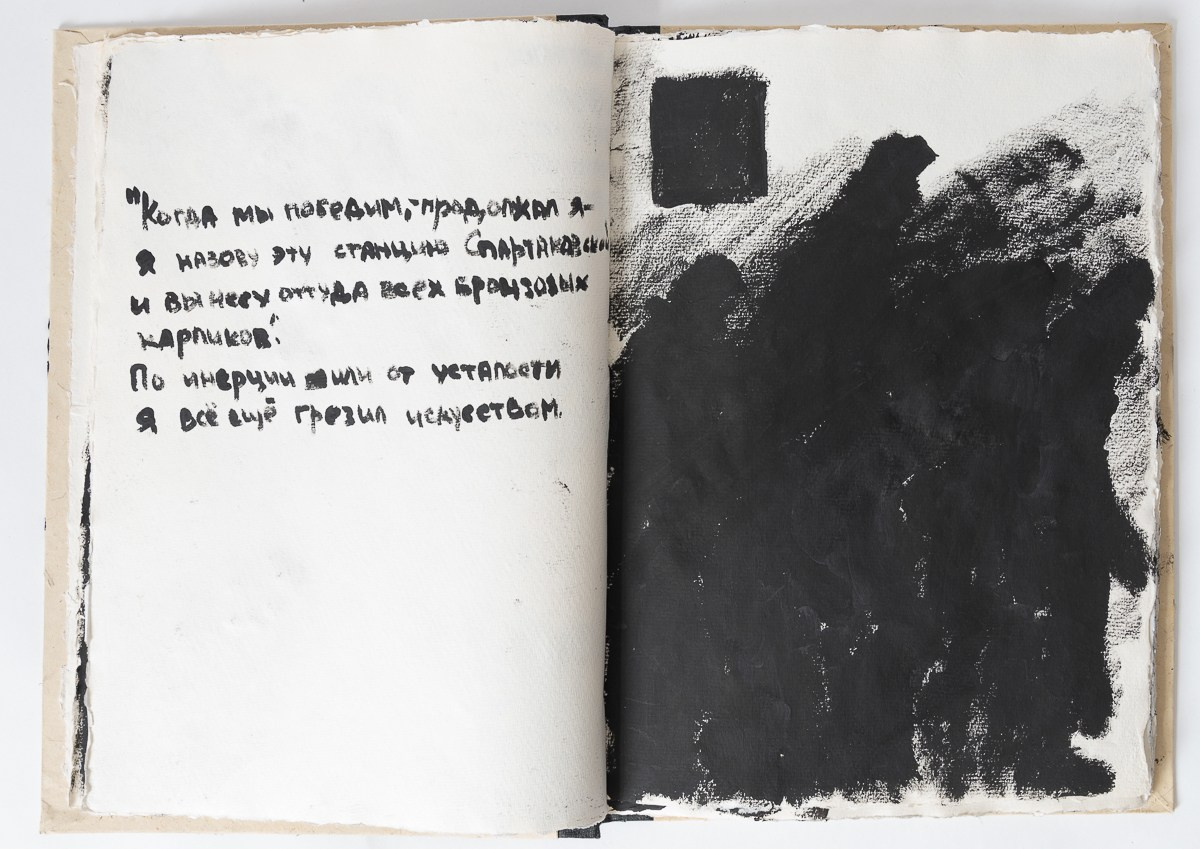 "Когда мы победим,-продолжал я-
я назову эту станцию Спартаковской
и вынесу оттуда всех бронзовых
карликов".
По инерции или от усталости
я всё ещё грезил искусством.